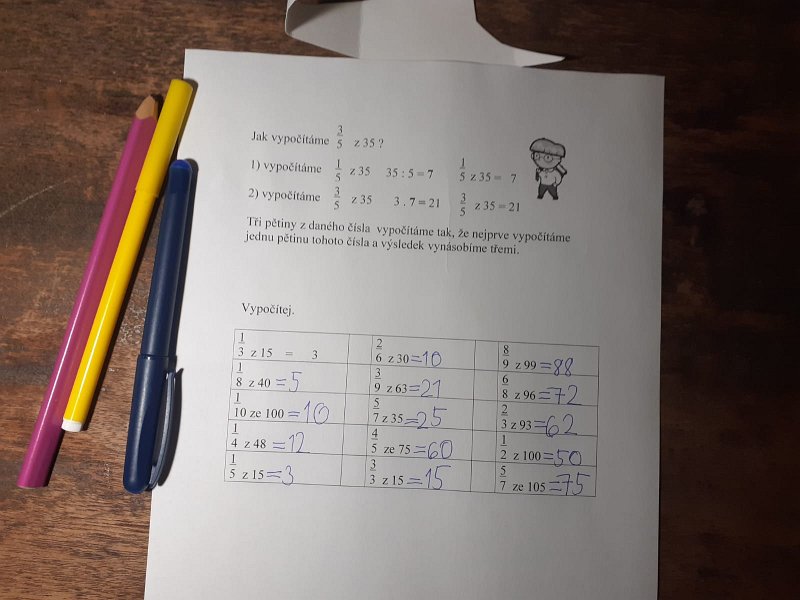 Jak vypočítáme 3/5 z 35 ?
1) vypočítáme 1/5 z 35 35 : 5 = 7 1/5 z 35 = 7
2) vypočítáme 3/5 z 35 3 . 7 = 21 3/5 z 35 = 21
Tři pětiny z daného čísla vypočítáme tak, že nejprve vypočítáme
jednu pětinu tohoto čísla a výsledek vynásobíme třemi.
Vypočítej.
1/3 z 15 = 3 2/6 z 30 =10 8/9 z 99 =88
1/8 z 40 =5 3/9 z 63 =21 6/8 z 96 =72
1/10 ze 100 =10 5/7 z 35 =25 2/3 z 93 =62
1/4 z 48 =12 4/5 ze 75 =60 1/2 z 100 =50
1/5 z 15 =3 3/3 z 15 =15 5/7 ze 105 =75